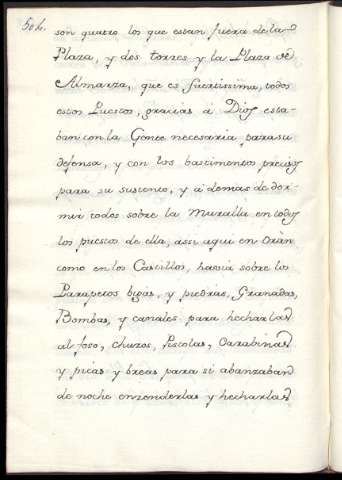 502.
son quatro los que estan fuera de la
Plaza, y dos torres y la Plaza de
Almarza, que es fuertissima, todos
estos Puestos, gracias á Dios esta-
ban con la Gente necesaria para su
defensa, y con los bastimentos precisos
para su sustento, y á demas de dor-
mir todos sobre la Muralla en todos
los puestos de ella, assi aqui en Orán
como en los Castillos, havia sobre los
Parapetos bigas, y piedras, Granadas,
Bombas, y canales para hecharlas
al foso, chuzos, Pistolas, Carabinas
y picas y breas para si abanzaban
de noche enzenderlas y hecharlas